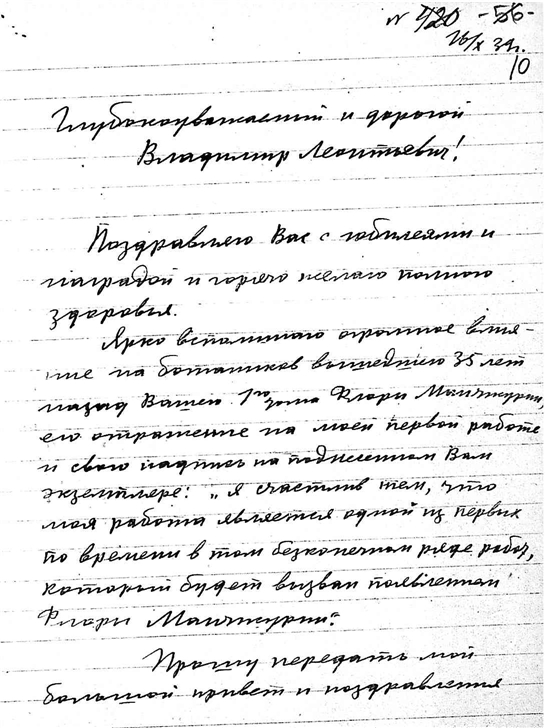 N 420 -56-
16/X 34г.
10
Глубокоуважаемый и дорогой
Владимир Леонтьевич!
Поздравляю Вас с юбилеями и
наградой и горячо желаю полного
здоровья.
Ярко вспоминаю огромное влия-
ние на ботаников вышедшего 35 лет
назад Вашего 1го тома Флоры Манчжурии,
его отражение на моей первой работе
и свою надпись на поднесенном Вам
экземпляре: "я счастлив тем, что
моя работа является одной из первых
по времени в том безконечном ряде работ,
который будет вызван появлением
Флоры Манчжурии."
Прошу передать мой
большой привет и поздравления